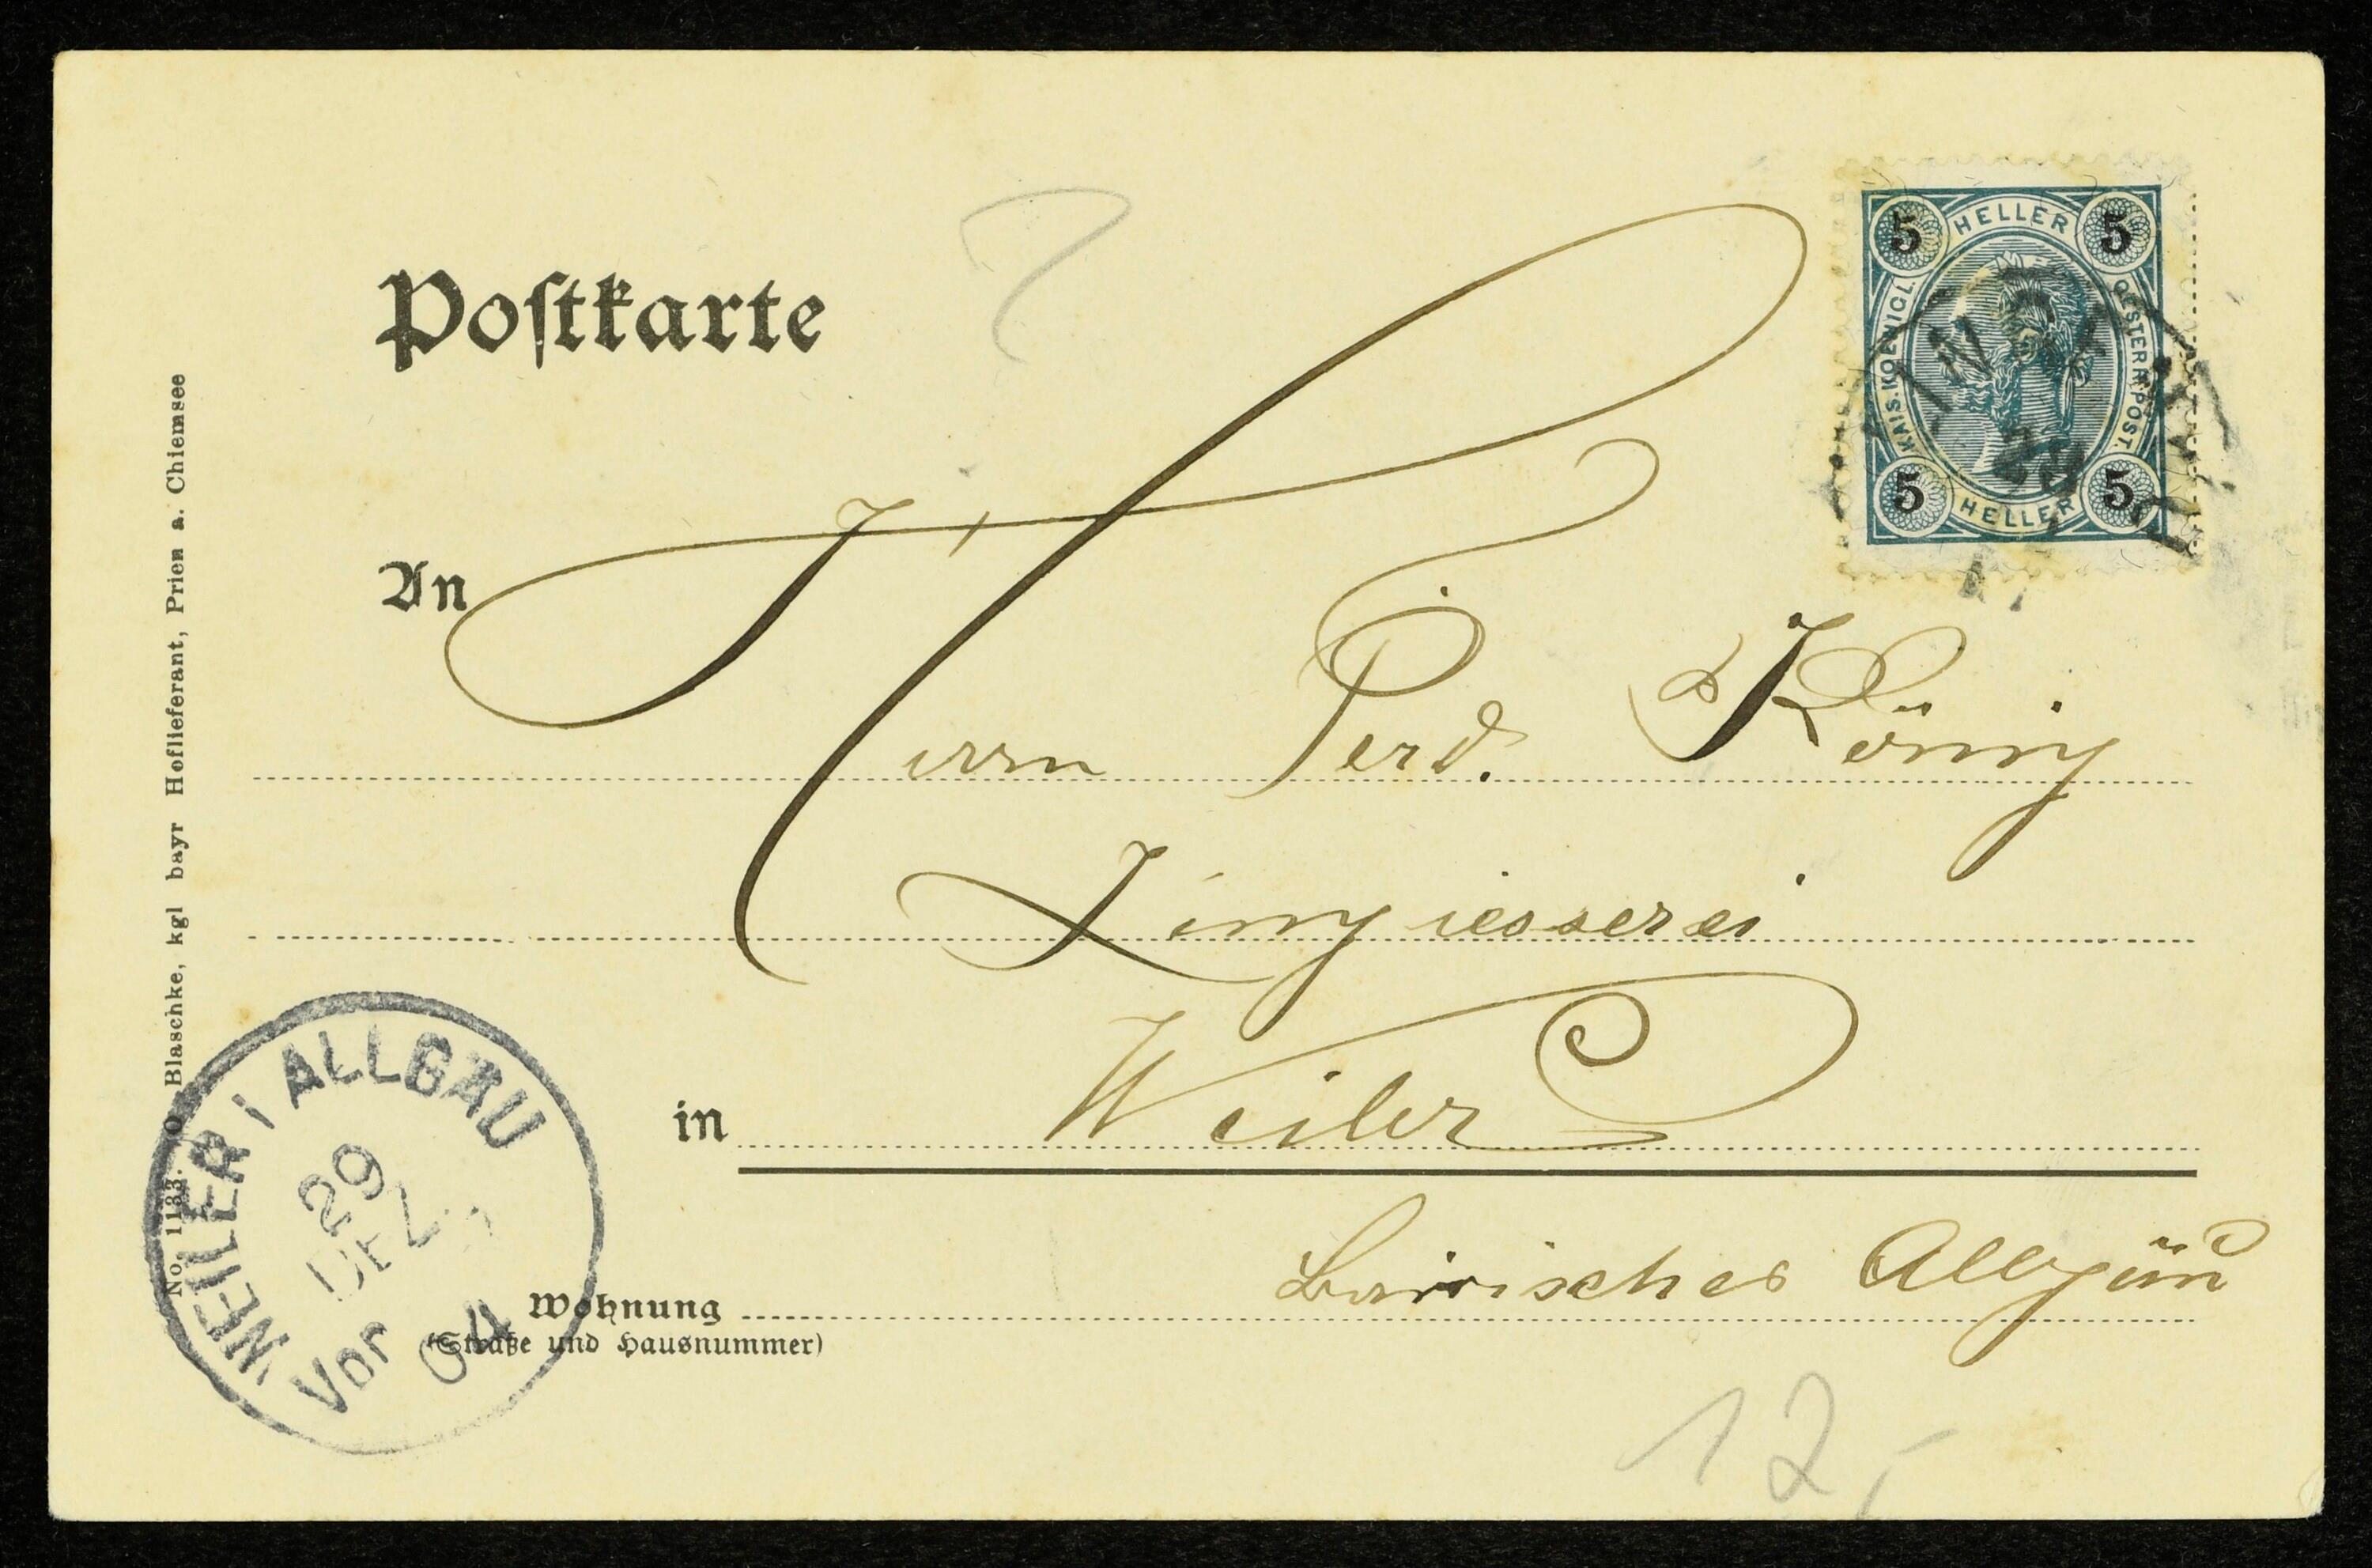 Postkarte
5 HELLER 5
KAIS. KOENIGL. OESTERR. POST.
5 HELLER 5
An
Herrn Ferd. König
Zinngiesserei
in Weiler
Bairisches Allgäu
Wohnung
(Straße und Hausnummer)
WEILER I ALLGÄU
29
DEZ
Vor 04
No. 1133. O. Blaschke, kgl bayr Hoflieferant, Prien a. Chiemsee
12,-